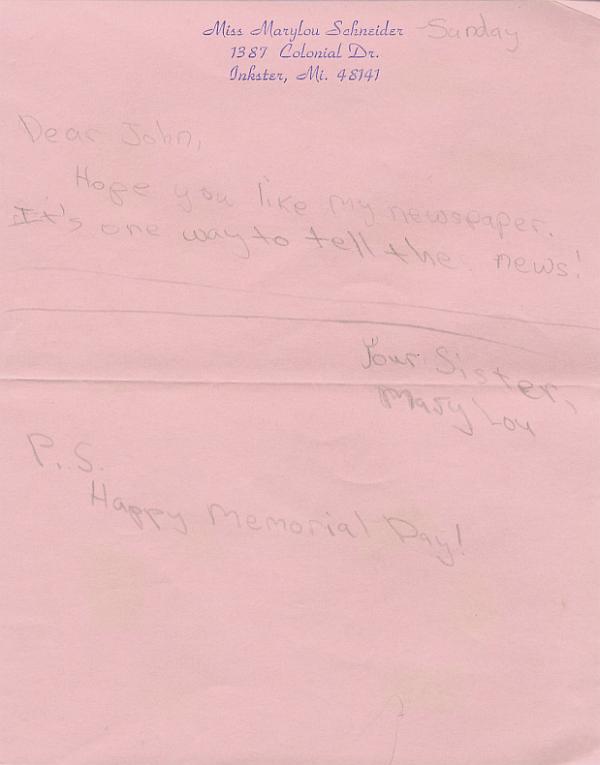 Miss Marylou Schneider
1387 Colonial Dr.
Inkster, Mi. 48141
Sunday
Dear John,
Hope you like my newspaper.
It's one way to tell the news!
Your Sister,
Mary Lou
P.S.
Happy Memorial Day!